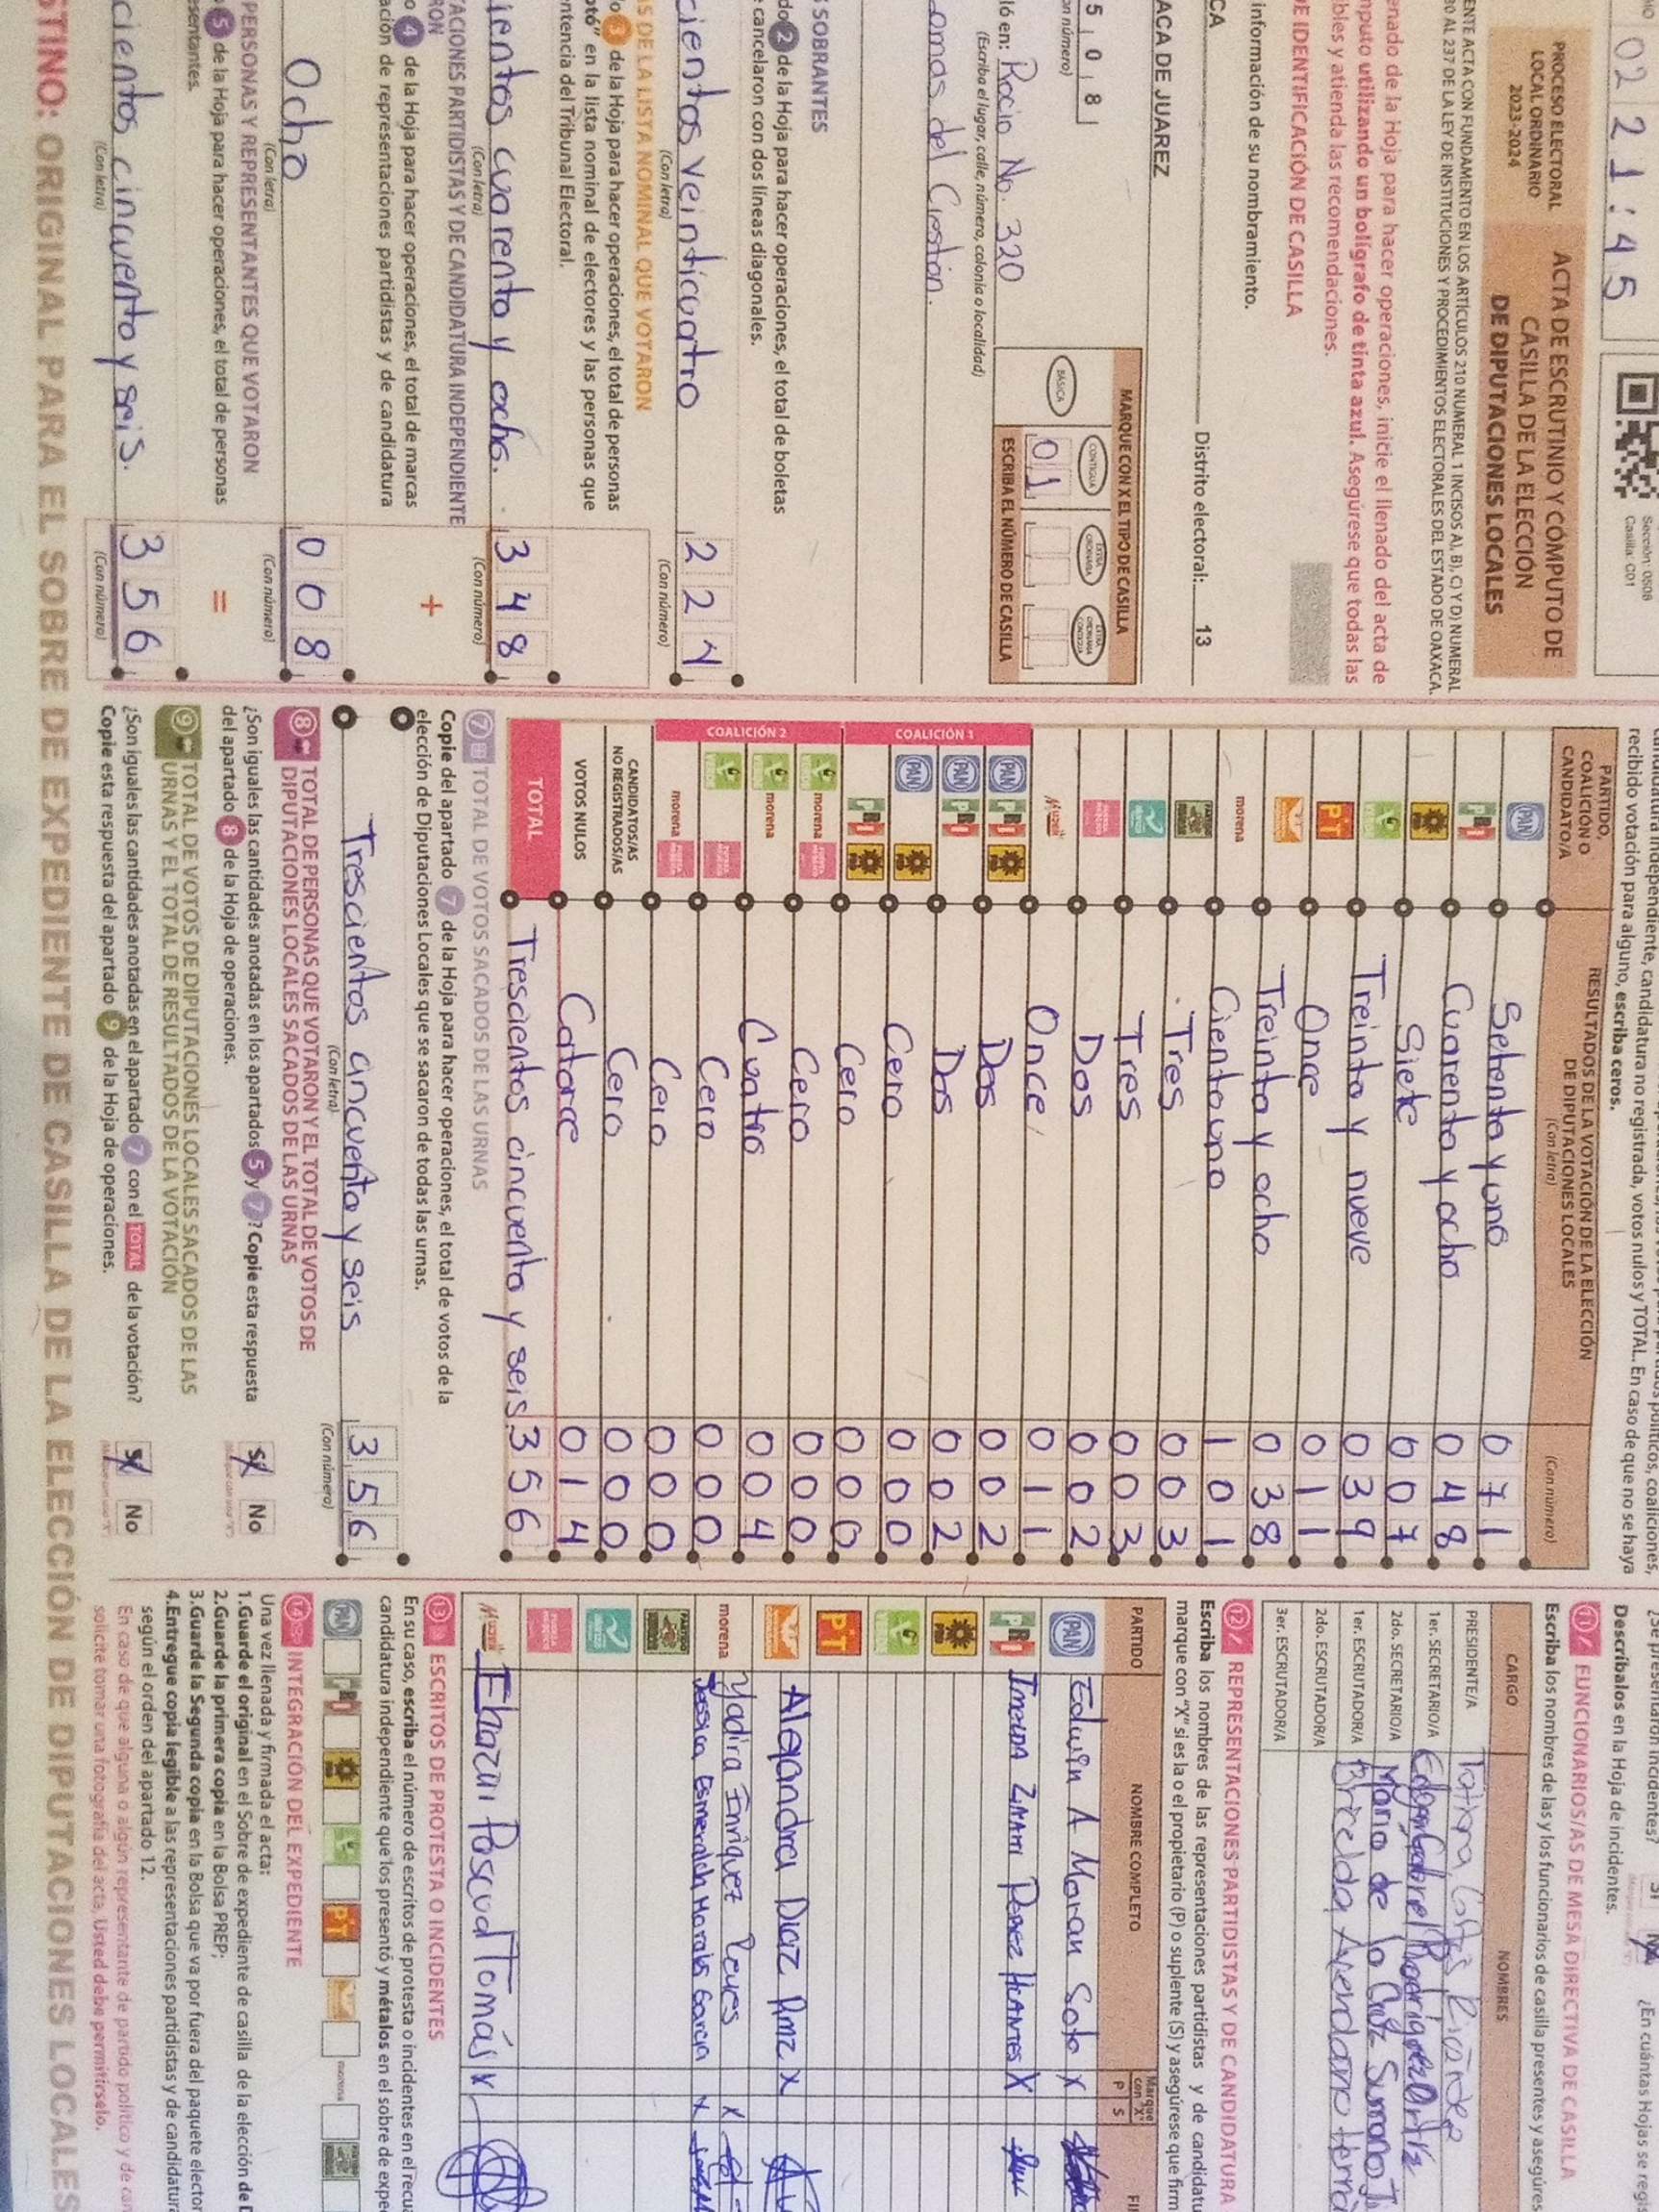 02 21:45
Sección: 0508
Casilla: C01
PROCESO ELECTORAL
LOCAL ORDINARIO
2023-2024
ACTA DE ESCRUTINIO Y CÓMPUTO DE
CASILLA DE LA ELECCIÓN
DE DIPUTACIONES LOCALES
ENTE ACTA CON FUNDAMENTO EN LOS ARTÍCULOS 210 NUMERAL 1 INCISOS A), B), C) Y D) NUMERAL
30 AL 237 DE LA LEY DE INSTITUCIONES Y PROCEDIMIENTOS ELECTORALES DEL ESTADO DE OAXACA.
enado de la Hoja para hacer operaciones, inicie el llenado del acta de
mputo utilizando un bolígrafo de tinta azul. Asegúrese que todas las
bles y atienda las recomendaciones.
DE IDENTIFICACIÓN DE CASILLA
información de su nombramiento.
CA Distrito electoral: 13
ACA DE JUAREZ
5 0 8
MARQUE CON X EL TIPO DE CASILLA
BÁSICA CONTIGUA EXTRAORDINARIA EXTRAORDINARIA CONTIGUA
01
ESCRIBA EL NÚMERO DE CASILLA
ló en: Rocio No. 320
(Escriba el lugar, calle, número, colonia o localidad)
omas del Creston.
S SOBRANTES
do 2 de la Hoja para hacer operaciones, el total de boletas
e cancelaron con dos líneas diagonales.
cientos veinticuatro 224
(Con letra) (Con número)
S DE LA LISTA NOMINAL QUE VOTARON
o 3 de la Hoja para hacer operaciones, el total de personas
otó" en la lista nominal de electores y las personas que
ntencia del Tribunal Electoral.
ientos cuarenta y ocho. 348
(Con letra) (Con número)
TACIONES PARTIDISTAS Y DE CANDIDATURA INDEPENDIENTE
RON
o 4 de la Hoja para hacer operaciones, el total de marcas
ación de representaciones partidistas y de candidatura
+
Ocho 008
(Con letra) (Con número)
PERSONAS Y REPRESENTANTES QUE VOTARON
5 de la Hoja para hacer operaciones, el total de personas
esentantes.
=
cientos cincuenta y seis. 356
(Con letra) (Con número)
recibido votación para alguno, escriba ceros.
PARTIDO,
COALICIÓN O
CANDIDATO/A
RESULTADOS DE LA VOTACIÓN DE LA ELECCIÓN
DE DIPUTACIONES LOCALES
(Con letra) (Con número)
PAN Setenta y uno 071
PRI Cuarenta y ocho 048
PRD Siete 007
VERDE Treinta y nueve 039
PT Once 011
Treinta y ocho 038
morena Ciento uno 101
Tres 003
Tres 003
Dos 002
Once 011
COALICIÓN 1
PAN PRI PRD Dos 002
PAN PRI Dos 002
PAN PRD Cero 000
PRI PRD Cero 000
COALICIÓN 2
VERDE morena Cero 000
VERDE morena Cuatro 004
VERDE Cero 000
morena Cero 000
CANDIDATOS/AS
NO REGISTRADOS/AS Cero 000
VOTOS NULOS Catorce 014
TOTAL Trescientos cincuenta y seis. 356
7 TOTAL DE VOTOS SACADOS DE LAS URNAS
Copie del apartado 7 de la Hoja para hacer operaciones, el total de votos de la
elección de Diputaciones Locales que se sacaron de todas las urnas.
Trescientos cincuenta y seis 356
(Con letra) (Con número)
8 TOTAL DE PERSONAS QUE VOTARON Y EL TOTAL DE VOTOS DE
DIPUTACIONES LOCALES SACADOS DE LAS URNAS
¿Son iguales las cantidades anotadas en los apartados 5 y 7? Copie esta respuesta
del apartado 8 de la Hoja de operaciones.
Sí No
9 TOTAL DE VOTOS DE DIPUTACIONES LOCALES SACADOS DE LAS
URNAS Y EL TOTAL DE RESULTADOS DE LA VOTACIÓN
¿Son iguales las cantidades anotadas en el apartado 7 con el TOTAL de la votación?
Copie esta respuesta del apartado 9 de la Hoja de operaciones.
Sí No
¿Se presentaron incidentes? Sí No ¿En cuántas Hojas se regis
Descríbalos en la Hoja de incidentes.
11 FUNCIONARIOS/AS DE MESA DIRECTIVA DE CASILLA
Escriba los nombres de las y los funcionarios de casilla presentes y asegúres
CARGO NOMBRES
PRESIDENTE/A
1er. SECRETARIO/A
2do. SECRETARIO/A Mario de la Cruz
1er. ESCRUTADOR/A
2do. ESCRUTADOR/A
3er. ESCRUTADOR/A
12 REPRESENTACIONES PARTIDISTAS Y DE CANDIDATURA
Escriba los nombres de las representaciones partidistas y de candidatu
marque con "X" si es la o el propietario (P) o suplente (S) y asegúrese que firm
PARTIDO NOMBRE COMPLETO Marque con "X" P S FI
PAN Edwin A Moran Soto X
PRI X
PRD
VERDE
PT
Alejandra Diaz Rmz X
morena Yadira Enriquez Reyes X
Jessica Esmeralda Morales Garcia X
Pascual Tomás X
13 ESCRITOS DE PROTESTA O INCIDENTES
En su caso, escriba el número de escritos de protesta o incidentes en el recu
candidatura independiente que los presentó y métalos en el sobre de expe
PAN PRI PRD VERDE PT morena
14 INTEGRACIÓN DEL EXPEDIENTE
Una vez llenada y firmada el acta:
1.Guarde el original en el Sobre de expediente de casilla de la elección de D
2.Guarde la primera copia en la Bolsa PREP;
3.Guarde la Segunda copia en la Bolsa que va por fuera del paquete elector
4.Entregue copia legible a las representaciones partidistas y de candidatura
según el orden del apartado 12.
En caso de que alguna o algún representante de partido político y de can
solicite tomar una fotografía del acta, Usted debe permitírselo.
STINO: ORIGINAL PARA EL SOBRE DE EXPEDIENTE DE CASILLA DE LA ELECCIÓN DE DIPUTACIONES LOCALES